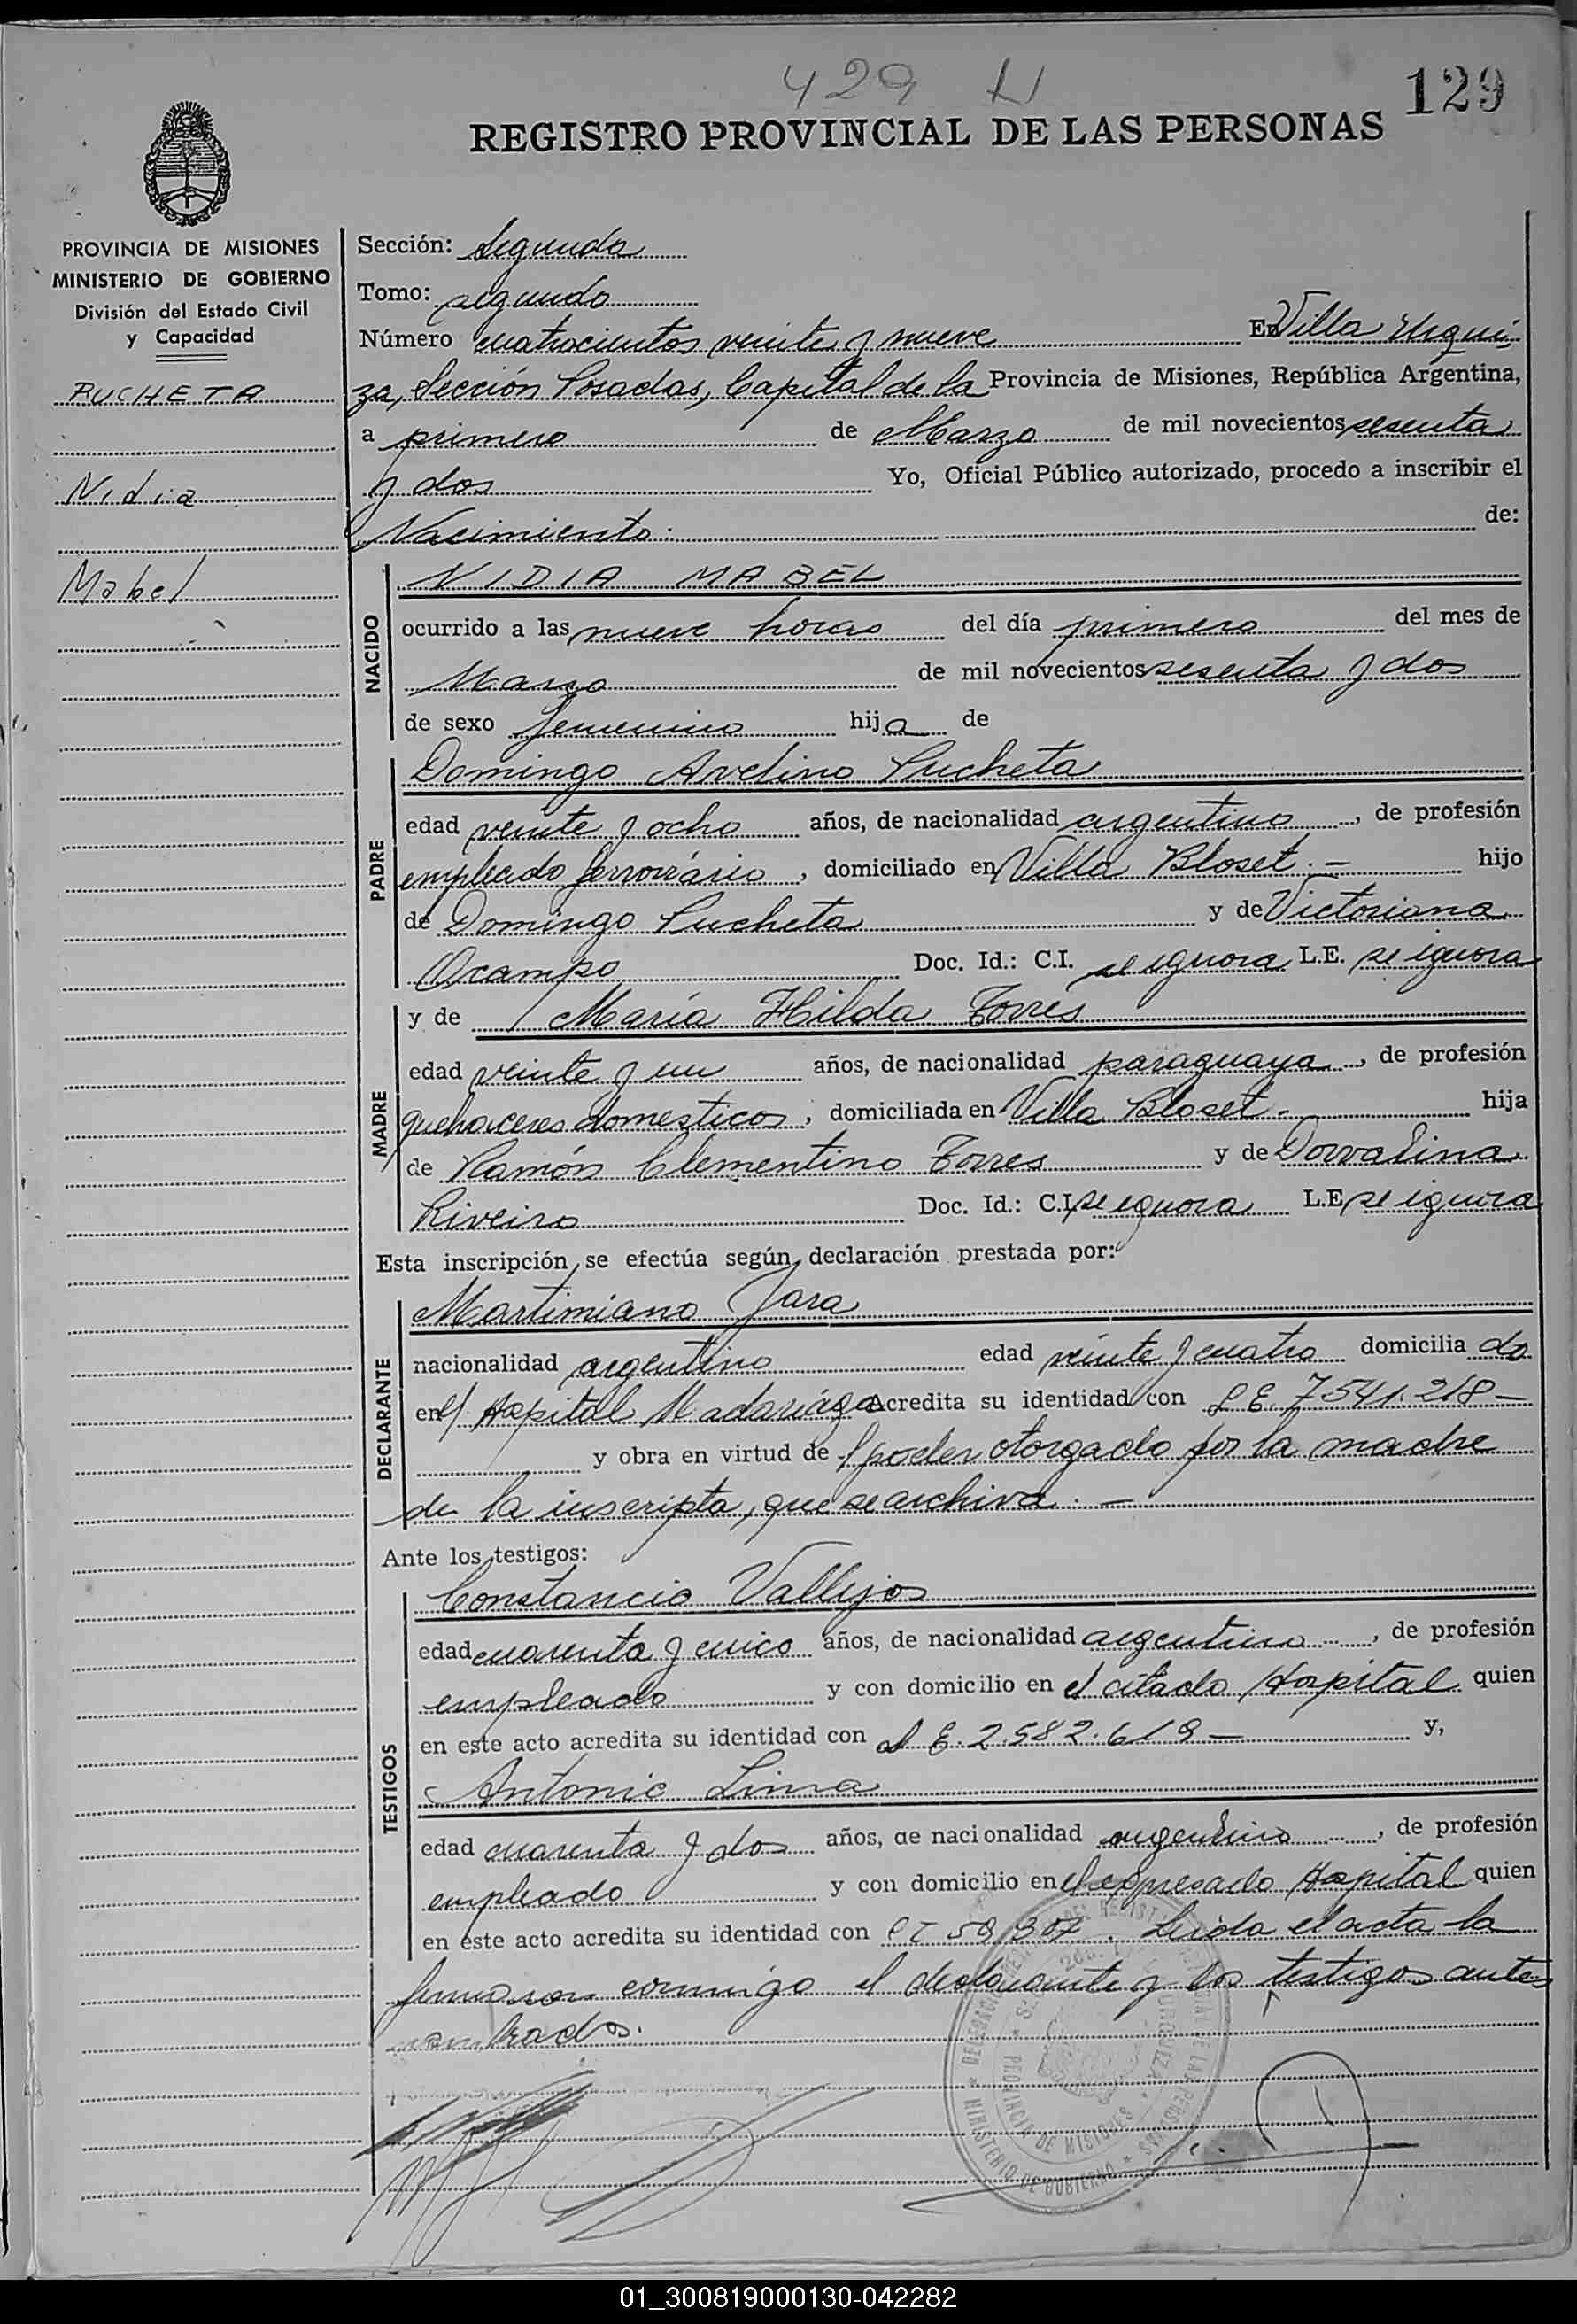 429
129
REGISTRO PROVINCIAL DE LAS PERSONAS
PROVINCIA DE MISIONES
MINISTERIO DE GOBIERNO
División del Estado Civil
y Capacidad
PUCHETA
Nidia
Mabel
Sección: Segunda
Tomo: segundo
Número cuatrocientos veinte y nueve En Villa Urqui-
za, Sección Posadas, Capital de la Provincia de Misiones, República Argentina,
a primero de Marzo de mil novecientos sesenta
y dos Yo, Oficial Público autorizado, procedo a inscribir el
Nacimiento: de:
NACIDO
NIDIA MABEL
ocurrido a las nueve horas del día primero del mes de
Marzo de mil novecientos sesenta y dos
de sexo femenino hija de
PADRE
Domingo Avelino Pucheta
edad veinte y ocho años, de nacionalidad argentino, de profesión
empleado ferroviario, domiciliado en Villa Bloset.- hijo
de Domingo Pucheta y de Victoriana
Ocampo Doc. Id.: C.I. se ignora L.E. se ignora
MADRE
y de María Hilda Torres
edad veinte y un años, de nacionalidad paraguaya, de profesión
quehaceres domesticos, domiciliada en Villa Bloset.- hija
de Ramón Clementino Torres y de Dorvalina
Riveiro Doc. Id.: C.I. se ignora L.E. se ignora
Esta inscripción se efectúa según declaración prestada por:
DECLARANTE
Martimiano Jara
nacionalidad argentino edad veinte y cuatro domiciliado
en el Hospital Madariaga acredita su identidad con L.E. 7541.218-
y obra en virtud de poder otorgado por la madre
de la inscripta, que se archiva.-
Ante los testigos:
TESTIGOS
Constancio Vallejos
edad cuarenta y cinco años, de nacionalidad argentino, de profesión
empleado y con domicilio en el citado Hospital quien
en este acto acredita su identidad con L.E. 2.582.619- y,
Antonio Lima
edad cuarenta y dos años, de nacionalidad argentino, de profesión
empleado y con domicilio en el expresado Hospital quien
en este acto acredita su identidad con Leída el acta la
firmaron conmigo el declarante y los testigos antes
nombrados.
MINISTERIO DE GOBIERNO
PROVINCIA DE MISIONES
01_300819000130-042282